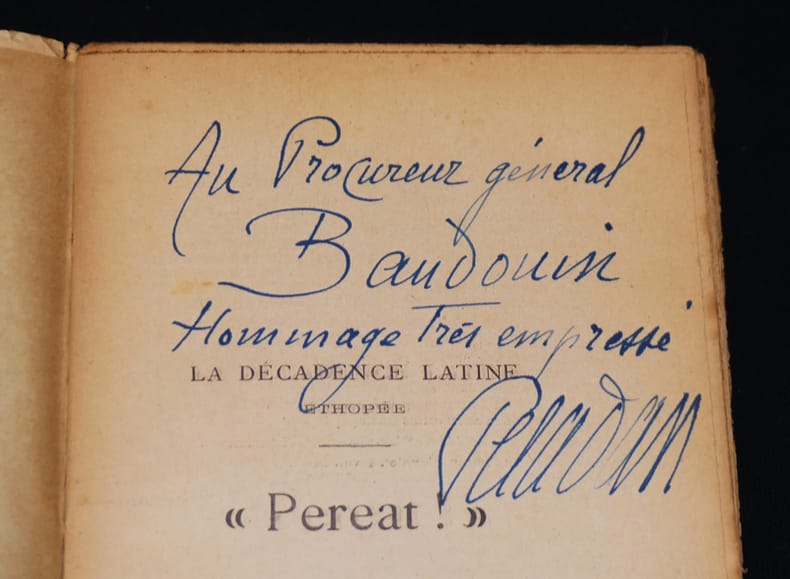 Au Procureur géneral
Baudouin
Hommage Très empressé
LA DÉCADENCE LATINE
ÉTHOPÉE
Peladan
« Pereat ! »